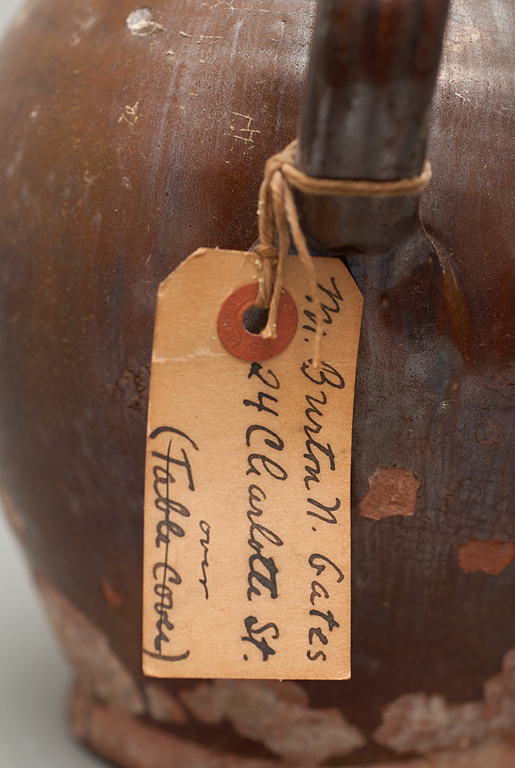 M. Burton N. Gates
24 Charlotte St.
over
(Table Cover)